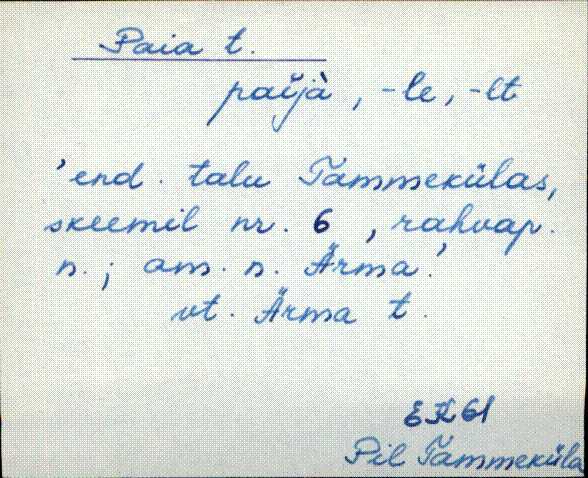 Paia t.
paijà, -le, -lt
'end. talu Tammekülas,
skeemil nr. 6, rahvap.
n.; am. n. Ärma'.
vt. Ärma t.
EK 61
Pil Tammeküla